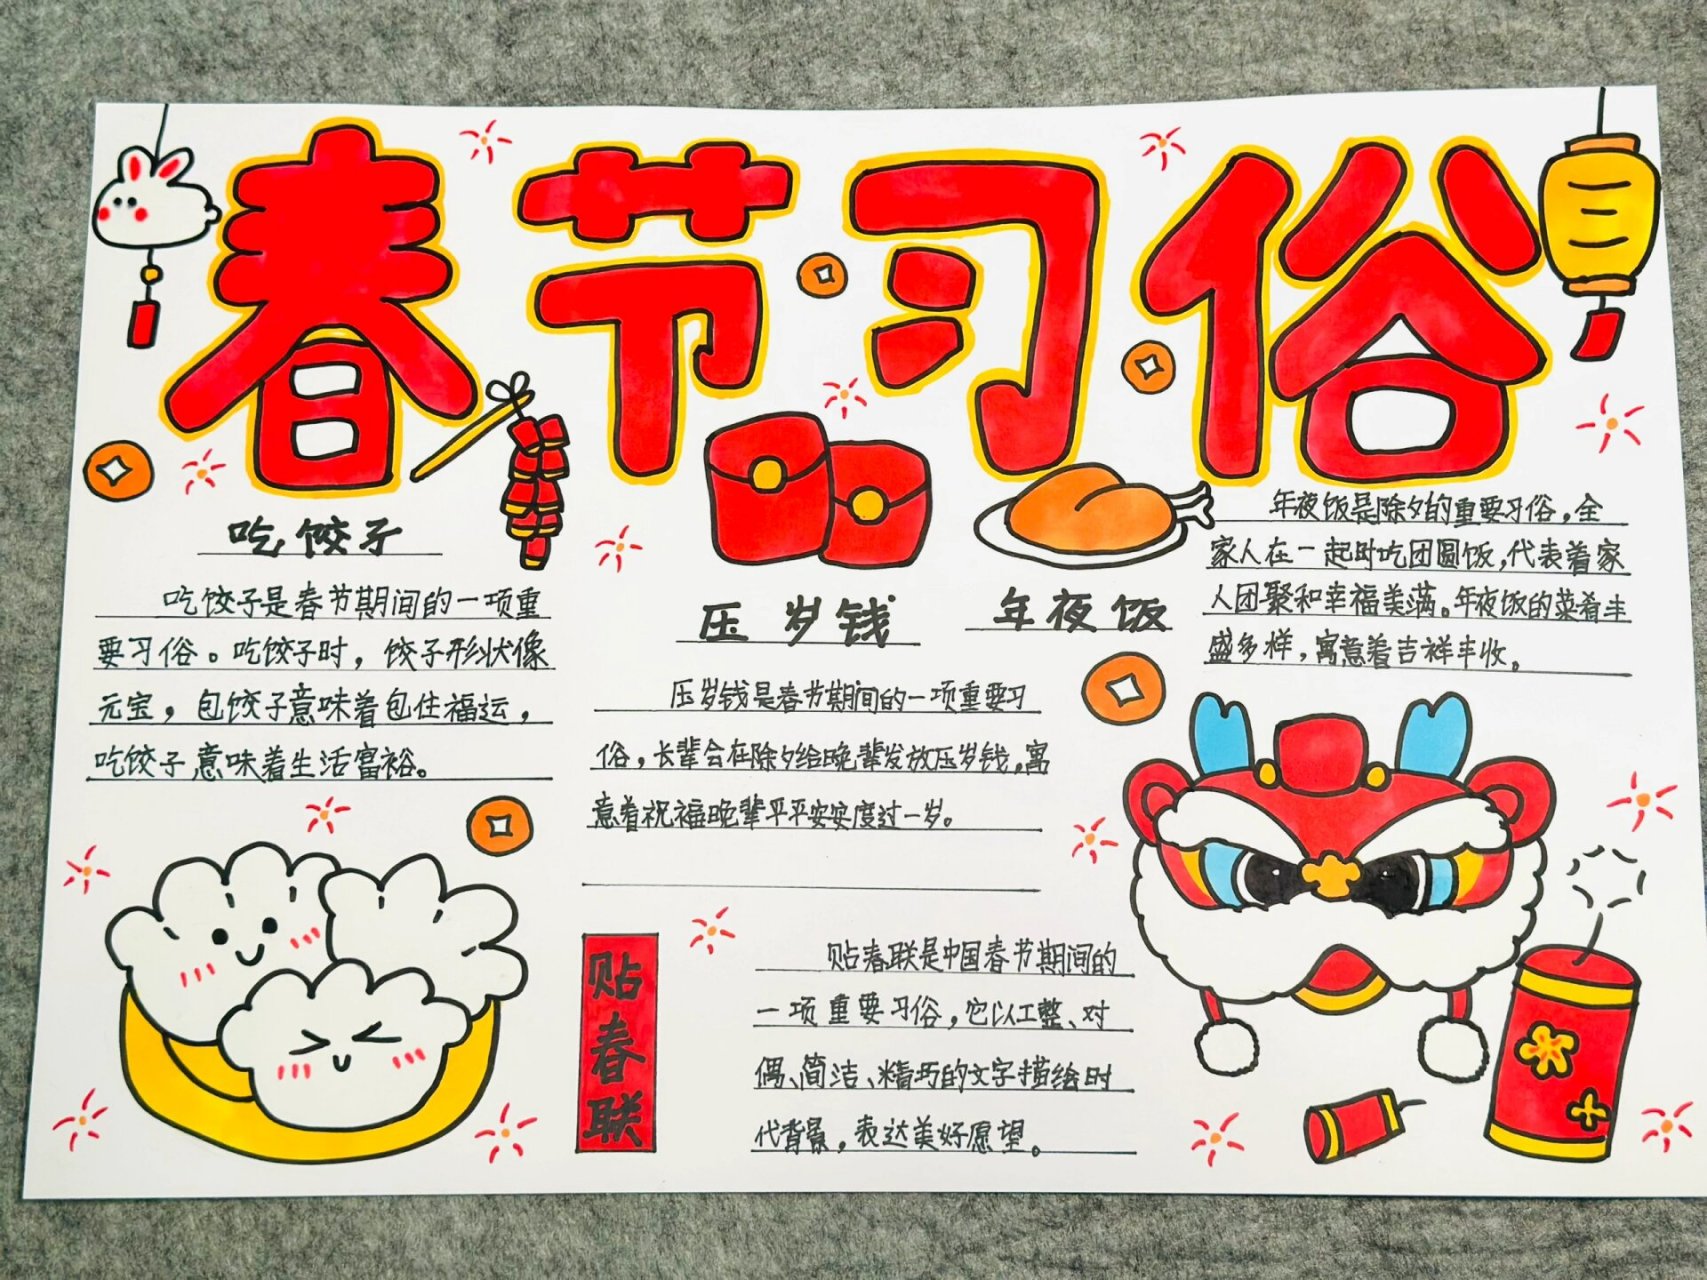 春节习俗
吃饺子
吃饺子是春节期间的一项重
要习俗。吃饺子时，饺子形状像
元宝，包饺子意味着包住福运，
吃饺子意味着生活富裕。
压岁钱
压岁钱是春节期间的一项重要习
俗，长辈会在除夕给晚辈发放压岁钱，寓
意着祝福晚辈平平安安度过一岁。
年夜饭
年夜饭是除夕的重要习俗，全
家人在一起时吃团圆饭，代表着家
人团聚和幸福美满。年夜饭的菜肴丰
盛多样，寓意着吉祥丰收。
贴春联
贴春联是中国春节期间的
一项重要习俗，它以工整、对
偶、简洁、精巧的文字描绘时
代背景，表达美好愿望。